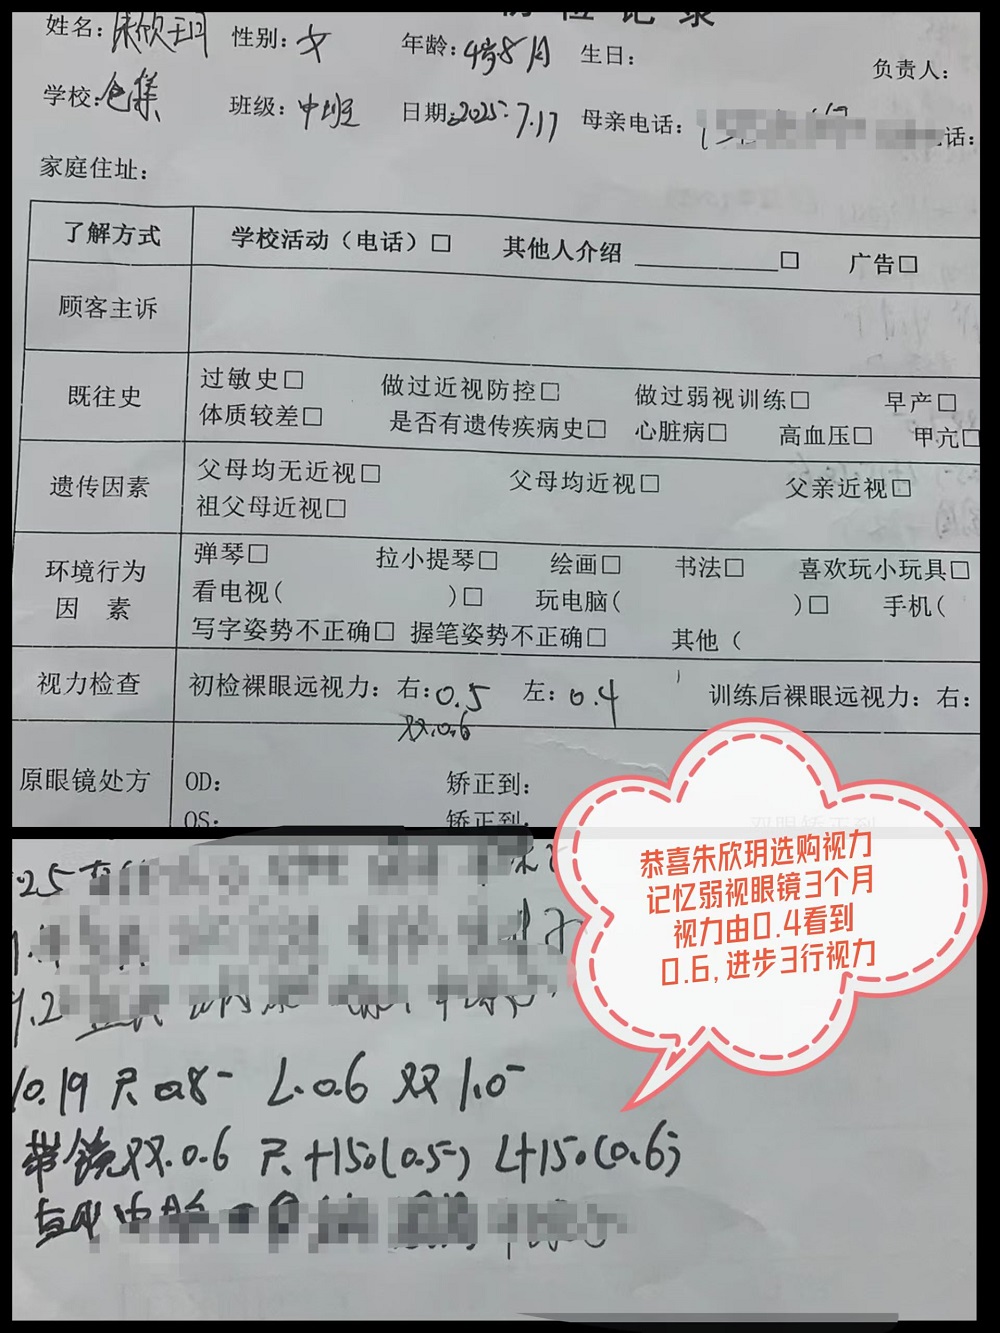 姓名：朱欣玥 性别：女 年龄：4岁8月 生日： 负责人：
学校：仓集 班级：中班 日期：2025.7.17 母亲电话： 话：
家庭住址：
了解方式 学校活动（电话）□ 其他人介绍 ________□ 广告□
顾客主诉
既往史 过敏史□ 做过近视防控□ 做过弱视训练□ 早产□
体质较差□ 是否有遗传疾病史□ 心脏病□ 高血压□ 甲亢□
遗传因素 父母均无近视□ 父母均近视□ 父亲近视□
祖父母近视□
环境行为因素 弹琴□ 拉小提琴□ 绘画□ 书法□ 喜欢玩小玩具□
看电视（ ）□ 玩电脑（ ）□ 手机（
写字姿势不正确□ 握笔姿势不正确□ 其他（
视力检查 初检裸眼远视力：右：0.5 左：0.4 训练后裸眼远视力：右：
双.0.6
原眼镜处方 OD： 矫正到：
OS： 矫正到：
恭喜朱欣玥选购视力
记忆弱视眼镜3个月
视力由0.4看到
0.6，进步3行视力
25
9.2
10.19 R 0.8⁻ L.0.6 双 1.0⁻
带镜双.0.6 R+150(0.5) L+150(0.6)